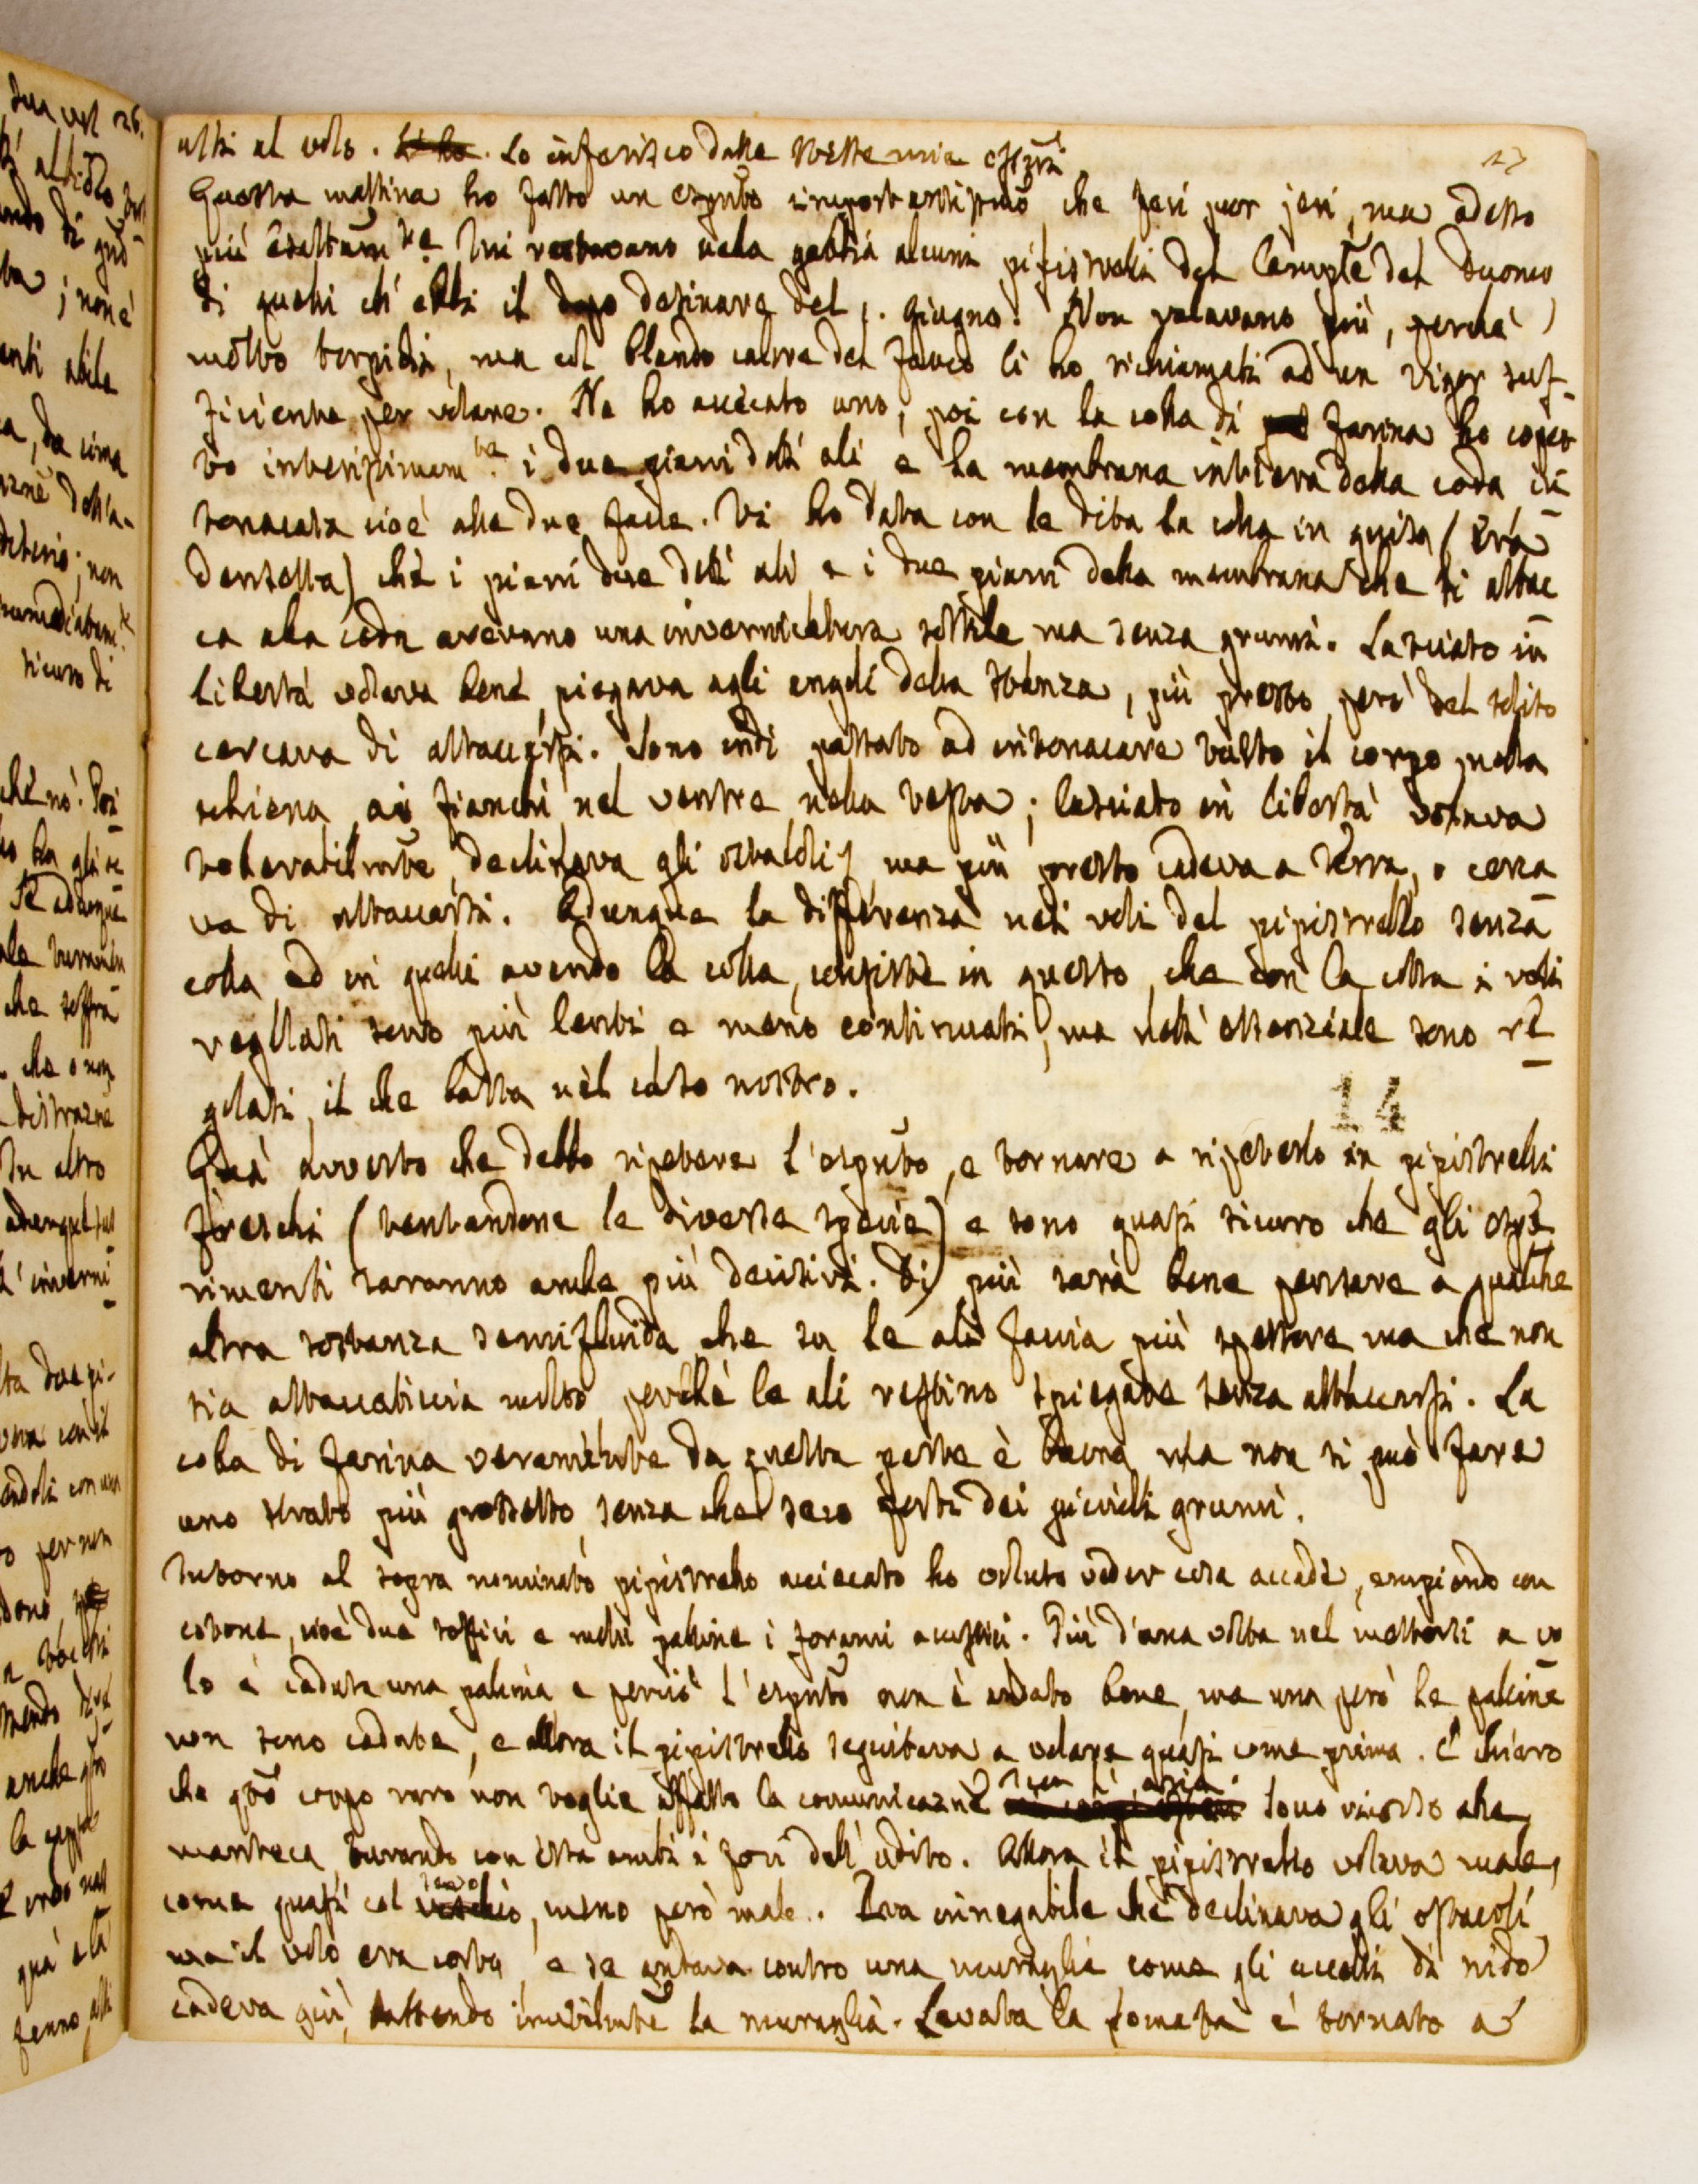 altri al volo. Lo inferisco dalle stesse mie
17
Questa mattina ho fatto un esprito importantissimo che feci pur jeri, ma adesso
più esattamte. Mi restavano nella gabbia alcuni pipistrelli del Cample del Duomo
di quelli ch' ebbi il dopo desinare del 1. Giugno. Non volavano più, perchè
molto torpidi, ma col blando calore del fuoco li ho richiamati ad un vigor suf-
ficiente per volare. Ne ho acciecato uno, poi con la colla di farina ho coper
to interissimamte i due piani dell' ali e la membrana intiera della coda in
tonacata cioè alle due facce. Vi ho data con le dita la colla in guisa (era
densetta) che i piani due dell' ali e i due piani della membrana che si attac
ca alla coda avevano una inverniciatura sottile ma senza grumi. Lasciato in
libertà volava bene, piegava agli angoli della stanza, più presto però del solito
cercava di attaccarsi. Sono indi passato ad intonacare tutto il corpo nella
schiena, ai fianchi nel ventre nella testa; lasciato in libertà volava
tolerabilmte, declinava gli ostacoli, ma più presto cadeva a terra, o cerca
va di attaccarsi. Adunque la differenza nei voli del pipistrello senza
colla, ed in quelli avendo la colla, consiste in questo, che con la colla i voli
regolati sono più lenti e meno continuati, ma nell' essenziale sono re
golati, il che basta nel caso nostro.
14
Qua avverto che debbo ripetere l'esprito, e tornare a ripeterlo in pipistrelli
freschi (tentandone le diverse specie) e sono quasi sicuro che gli espe
rimenti saranno anche più decisivi. Di più sarà bene pensare a qualche
altra sostanza semifluida che su le ali faccia più spessore ma che non
sia attaccaticcia molto, perchè le ali restino spiegate senza attaccarsi. La
colla di farina veramente da questa parte è buona, ma non si può fare
uno strato più grossetto, senza che seco porti dei piccioli grumi.
Intorno al sopra nominato pipistrello acciecato ho voluto veder cosa accade, empiendo con
cotone, cioè due soffici e molli palline i forami acustici. Più d'una volta nel mettersi a vo
lo è caduta una pallina e perciò l'esprito non è andato bene, ma una però le palline
non sono cadute, e allora il pipistrello seguitava a volare quasi come prima. È chiaro
che qto corpo raro non toglie affatto la comunicazne con l' aria. Sono ricorso alla
manteca, turando con esta ambi i fori dell' udito. Allora il pipistrello volava male,
come quasi col sevo, meno però male. Era innegabile che declinava gli ostacoli
ma il volo era corto, e se andava contro una muraglia come gli uccelli di nido
cadeva giù, battendo inutilmte la muraglia. Levata la pomata è tornato a